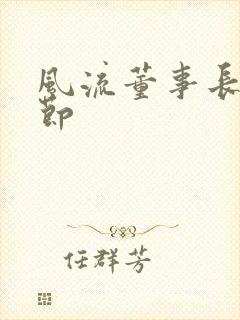 風流董事長
節
任群芳